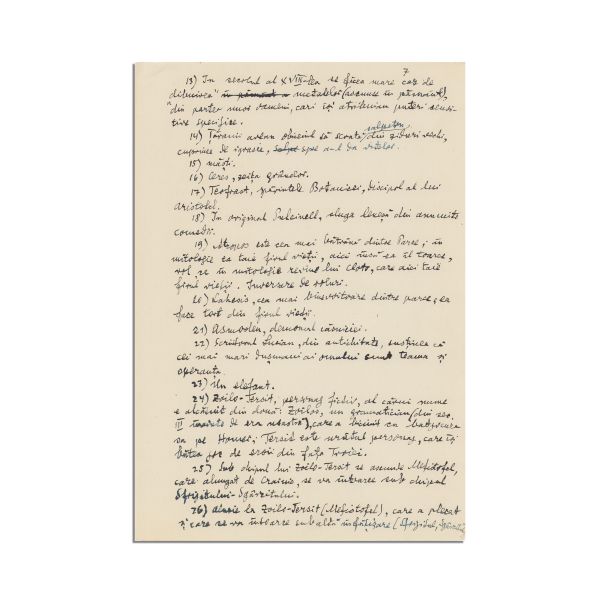 7
13) In secolul al XVIII-lea se făcea mare caz de
" ̶î̶n̶ ̶p̶ă̶m̶â̶n̶t̶ a metalelor (ascunse în pământ),
din partea unor oameni, cari își atribuiau puteri
specifice.
14) Țăranii aveau obiceiul să scoată salpetru din ziduri vechi,
cuprinse de igrasie, spre a-l da vitelor.
15) măști.
16) Ceres, zeița grânelor.
17) Teofrast, părintele Botanicei, discipol al lui
Aristotel.
18) In original Pulcinell, sluga din anumite
comedii.
19) Atropos este cea mai bătrână dintre Parce; în
mitologie ea taie firul vieții, aici însă ea îl toarce,
rol, ce în mitologie revine lui Cloto, care aici taie
firul vieții. Inversare de roluri.
20) Lahesis, cea mai binevoitoare dintre parce; ea
face tort din firul vieții.
21) Asmodeu, demonul căsniciei.
22) Scriitorul Lucian, din antichitate, susținea că
cei mai mari dușmani ai omului sunt teama și
speranța.
23) Un elefant.
24) Zoilo-Tersit, personaj fictiv, al cărui nume
e alcătuit din două: Zoilos, un gramatician (din sec.
III de era noastră), care a
pe Homer; Tersit este urâtul personaj, care își
bătea joc de eroii din fața Troiei.
25) Sub chipul lui Zoilo-Tersit se ascunde Mefistofel,
care alungat de Crainic, se va întoarce sub chipul
Sfrijitului-Zgârcitului.
26) la Zoilo-Tersit (Mefistofel), care a plecat
și care se va întoarce sub altă înfățișare (Sfrijitul,